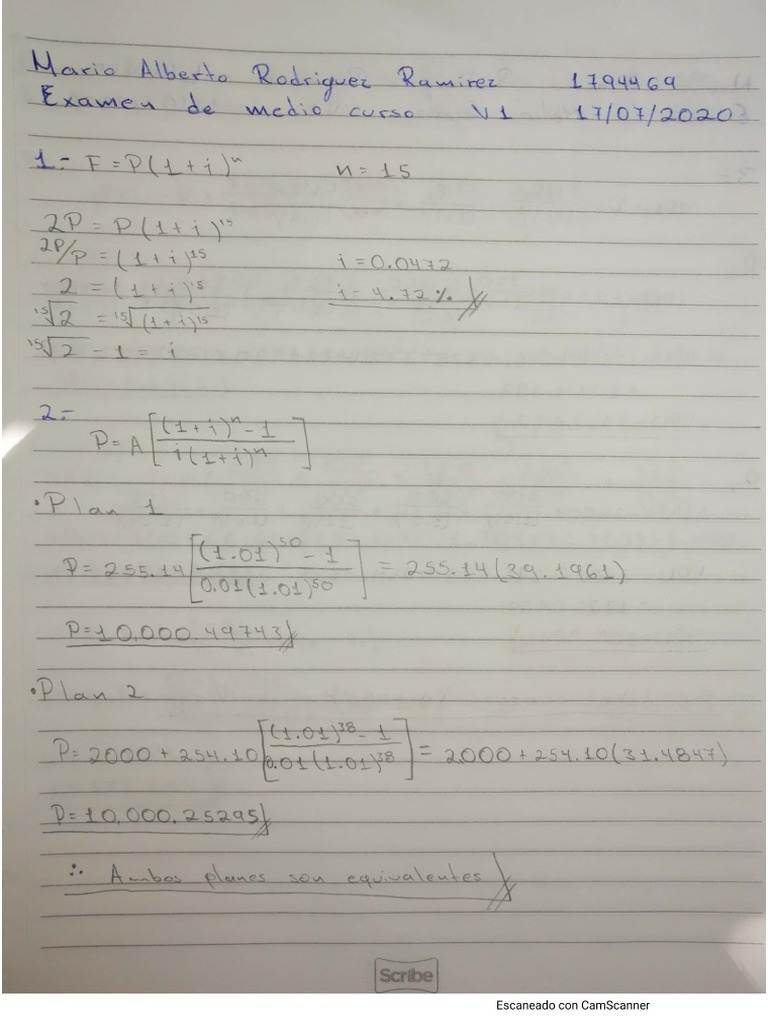 Mario Alberto Rodriguez Ramirez 1794469
Examen de medio curso V1 17/07/2020
1.- F=P(1+i)^n n=15
2P = P(1+i)^15
2P/P = (1+i)^15 i=0.0472
2 = (1+i)^15 i=4.72%
15√2 = 15√(1+i)^15
15√2 - 1 = i
2.-
P=A[((1+i)^n - 1)/(i(1+i)^n)]
• Plan 1
P= 255.14[((1.01)^50 - 1)/(0.01(1.01)^50)] = 255.14(39.1961)
P=10,000.49743
• Plan 2
P= 2000 + 254.10[((1.01)^38 - 1)/(0.01(1.01)^38)] = 2000 + 254.10(31.4847)
P=10,000.25295
∴ Ambos planes son equivalentes
Scribe
Escaneado con CamScanner